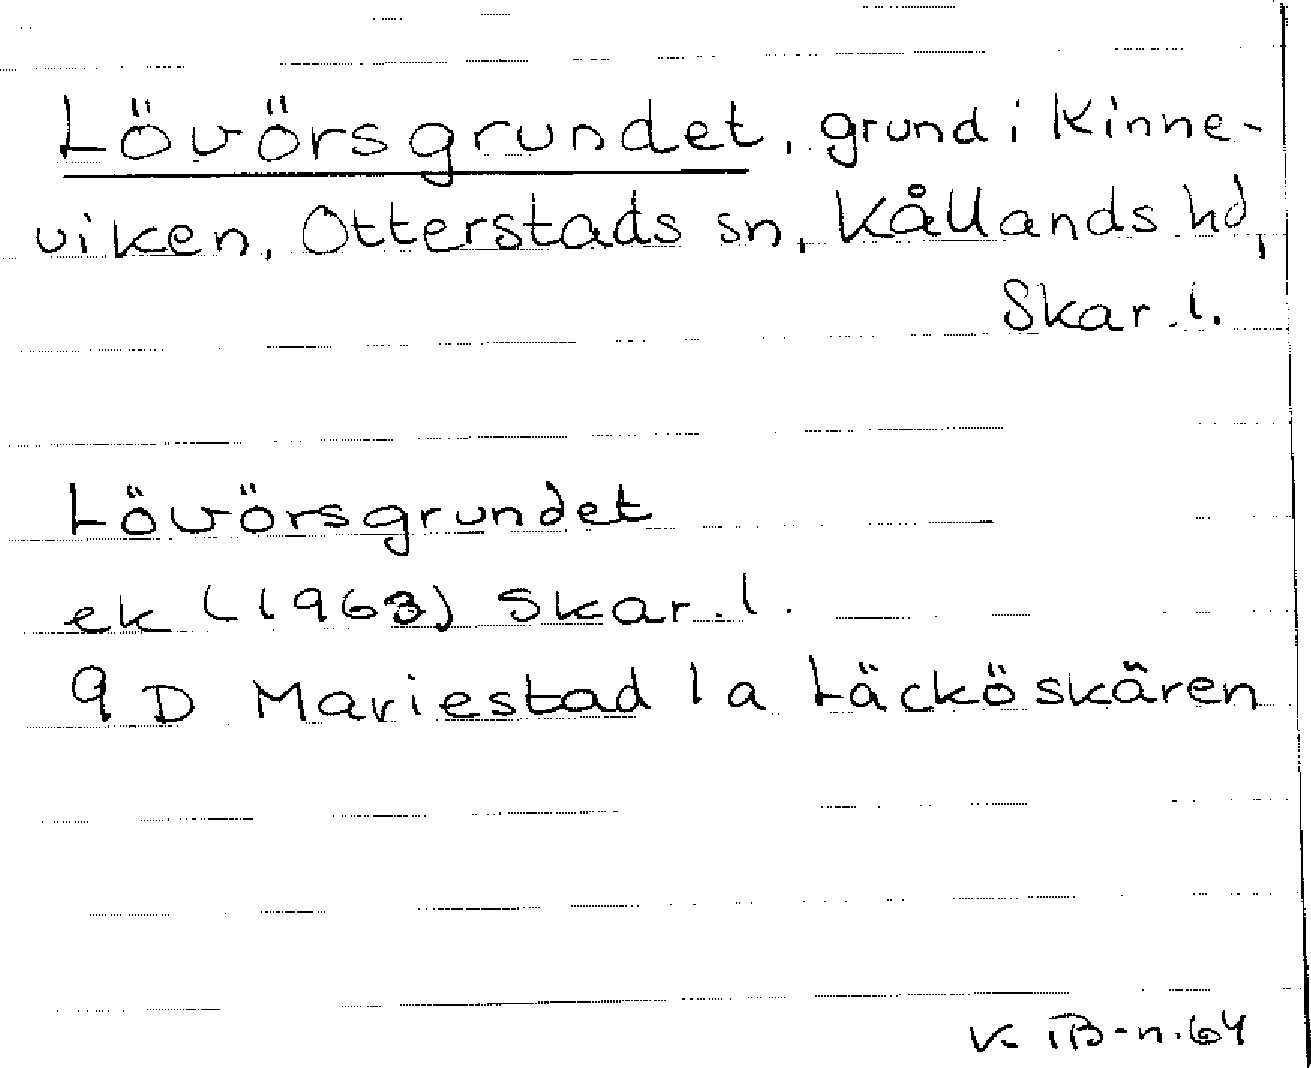 Lövörsgrundet, grund i Kinne-
viken, Otterstads sn, Kållands hd,
Skar. l.
Lövörsgrundet
ek (1963) Skar. l.
9 D Mariestad 1 a Läcköskären
K IB-n. 64